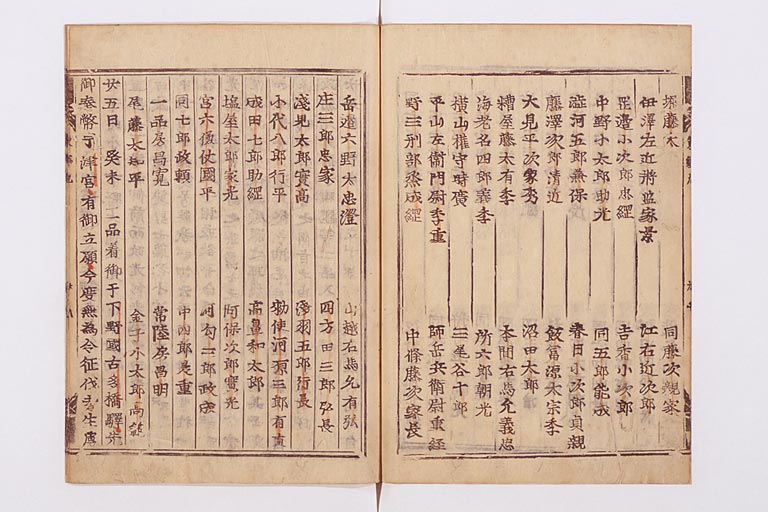 堀藤太 同藤次親家
伊澤左近将監家景 江右近次郎
里邉小次郎忠經 吉香小次郎
中野小太郎助光 同五郎能成
澁河五郎兼保 春日小次郎貞親
藤澤次郎清近 飯冨源太宗季
大見平次家秀 沼田太郎
糟屋藤太有季 本間右馬允義忠
海老名四郎義季 所六郎朝光
横山權守時廣 三尾谷十郎
平山左衛門尉季重 師岳兵衛尉重經
野三刑部丞成綱 中條藤次家長
岳邉六野太忠澄 山越右馬允有弘
庄三郎忠家 四方田三郎弘長
淺見太郎實高 淺羽五郎行長
小代八郎行平 勅使河原三郎有直
成田七郎助綱 高鼻和太郎
塩屋太郎家光 阿保次郎實光
宮六傔仗國平 河匂三郎政成
同七郎政頼 中四郎是重
一品房昌寛 常陸房昌明
尾藤太知平 金子小太郎高範
廿五日 癸未 二品着御于下野國古多橋驛先
御奉幣于津宮有御立願今度無為令征伐者生虜